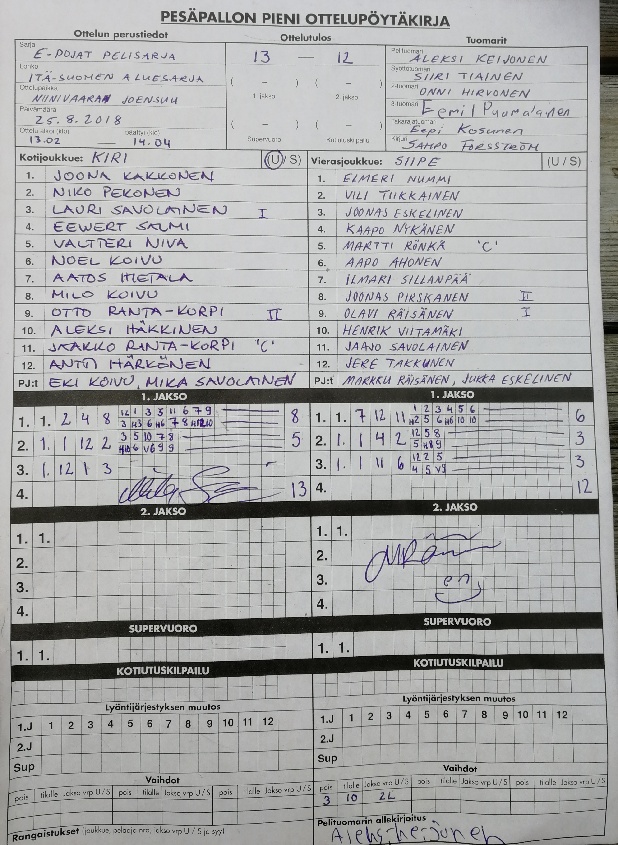 PESÄPALLON PIENI OTTELUPÖYTÄKIRJA
Ottelun perustiedot Ottelutulos Tuomarit
Sarja E-POJAT PELISARJA 13 — 12 Pelituomari ALEKSI KEIJONEN
Lohko ITÄ-SUOMEN ALUESARJA ( – ) ( – ) Syöttötuomari SIIRI TIAINEN
Ottelupaikka NIINIVAARAN JOENSUU 1. jakso 2. jakso 2-tuomari ONNI HIRVONEN
Päivämäärä 25.8.2018 ( – ) ( – ) 3-tuomari Eemil Puomalanen
Takarajatuomari Eepi Kosunen
13.02 — 14.04 Supervuoro Kotiutuskilpailu Kirjuri SAMPO FORSSTRÖM
Kotijoukkue: KIRI (U/S) Vierasjoukkue: SIIPE (U/S)
1. JOONA KAKKONEN 1. ELMERI NUMMI
2. NIKO PEKONEN 2. VILI TIIKKAINEN
3. LAURI SAVOLAINEN I 3. JOONAS ESKELINEN
4. EEWERT SALMI 4. KAAPO NYKÄNEN
5. VALTTERI NIVA 5. MARTTI RÖNKÄ 'C'
6. NOEL KOIVU 6. AAPO AHONEN
7. AATOS METALA 7. ILMARI SILLANPÄÄ
8. MILO KOIVU 8. JOONAS PIRSKANEN II
9. OTTO RANTA-KORPI II 9. OLAVI RÄISÄNEN I
10. ALEKSI HÄKKINEN 10. HENRIK VIITAMÄKI
11. JAAKKO RANTA-KORPI 'C' 11. JAAJO SAVOLAINEN
12. ANTTI HÄRKÖNEN 12. JERE TAKKUNEN
PJ:t EKI KOIVU, MIKA SAVOLAINEN PJ:t MARKKU RÄISÄNEN, JUKKA ESKELINEN
1. JAKSO 1. JAKSO
1. 1. 2 4 8 12 1 3 5 11 6 7 9 8 1. 1. 7 12 11 1 2 3 4 5 6 6
3 H3 6 H6 7 8 H12 10 H2 5 H6 H6 10 10
2. 1. 1 12 2 3 5 10 7 8 5 2. 1. 1 4 2 12 5 8 3
H10 6 V6 9 9 2 5 H6 9
3. 1. 12 1 3 3. 1. 1 11 6 12 2 5 3
4 5 V9
4. 13 4. 12
2. JAKSO 2. JAKSO
1. 1. 1. 1.
2. 2.
3. 3.
4. 4.
SUPERVUORO SUPERVUORO
1. 1. 1. 1.
KOTIUTUSKILPAILU KOTIUTUSKILPAILU
Lyöntijärjestyksen muutos Lyöntijärjestyksen muutos
1.J 1 2 3 4 5 6 7 8 9 10 11 12 1.J 1 2 3 4 5 6 7 8 9 10 11 12
2.J 2.J
Sup Sup
Vaihdot Vaihdot
pois tilalle Jakso vrp U / S pois tilalle Jakso vrp U / S pois tilalle Jakso vrp U / S pois tilalle Jakso vrp U / S pois tilalle Jakso vrp U / S pois tilalle Jakso vrp U / S
3 10 2L
Rangaistukset joukkue, pelaaja nro, jakso vrp U / S ja syy Pelituomarin allekirjoitus
Aleksi Keijonen